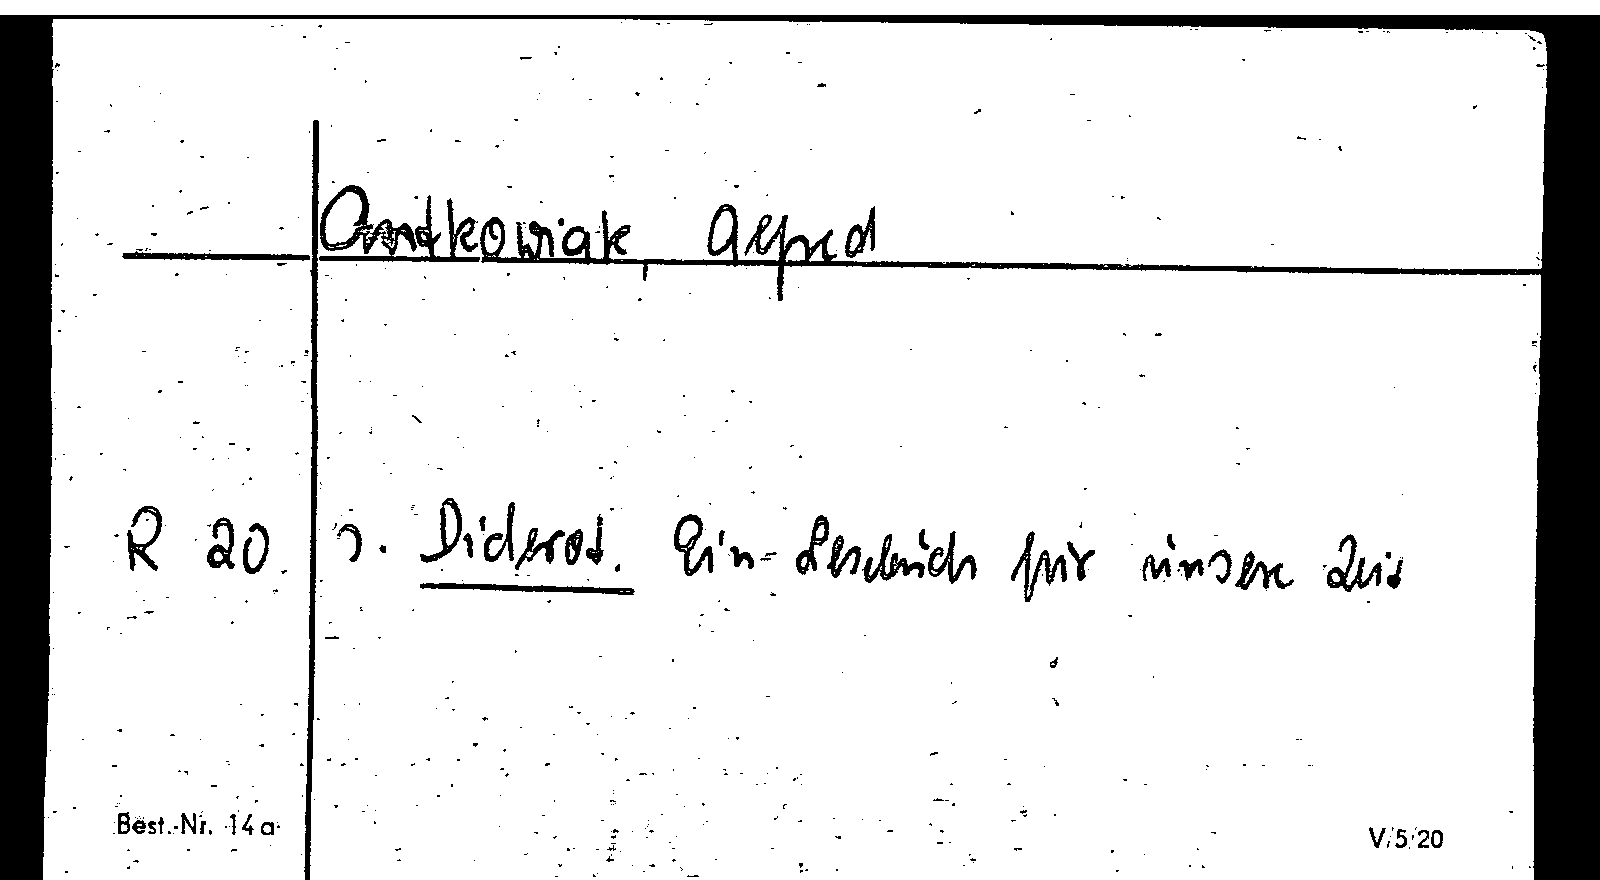 Antkowiak, Alfred
R 20. s. Diderot. Ein Lesebuch für unsere Zeit
Best.-Nr. 14a V/5/20